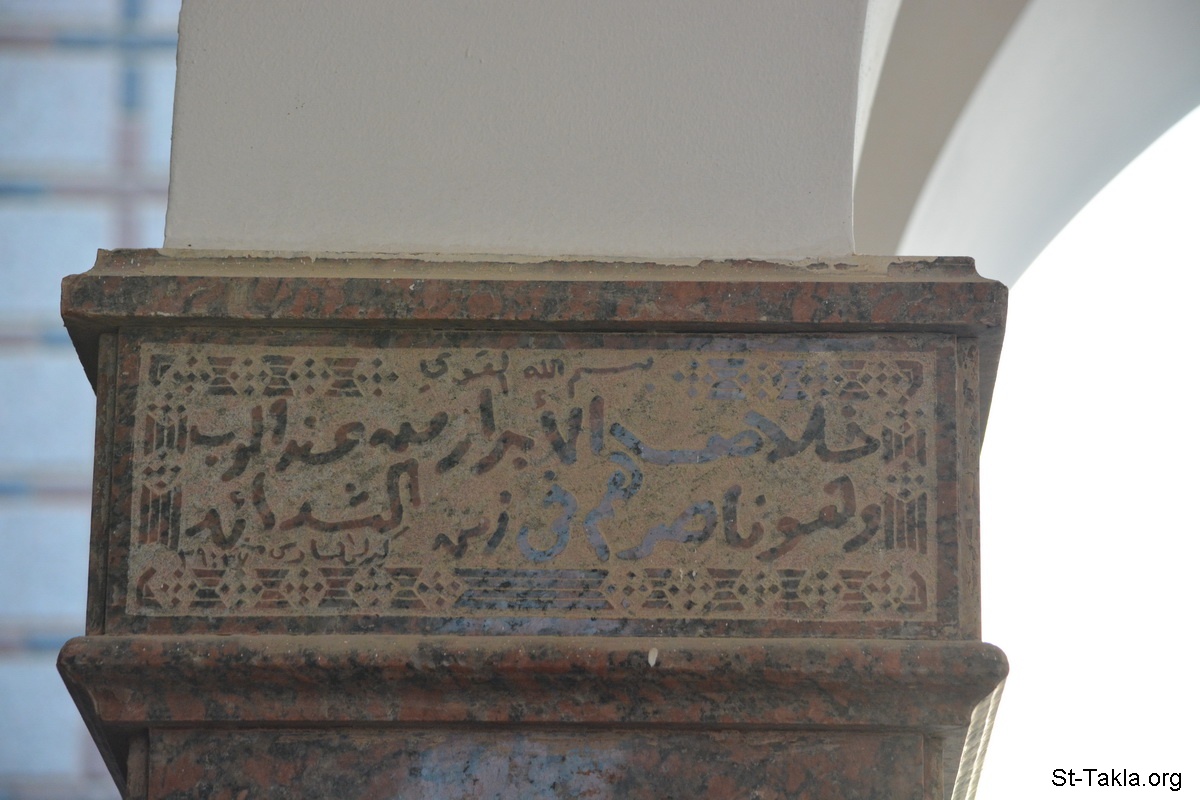 بسم الله القوي
خلاص الأبرار من عند الرب
وهو ناصرهم في زمن الشدائد
St-Takla.org